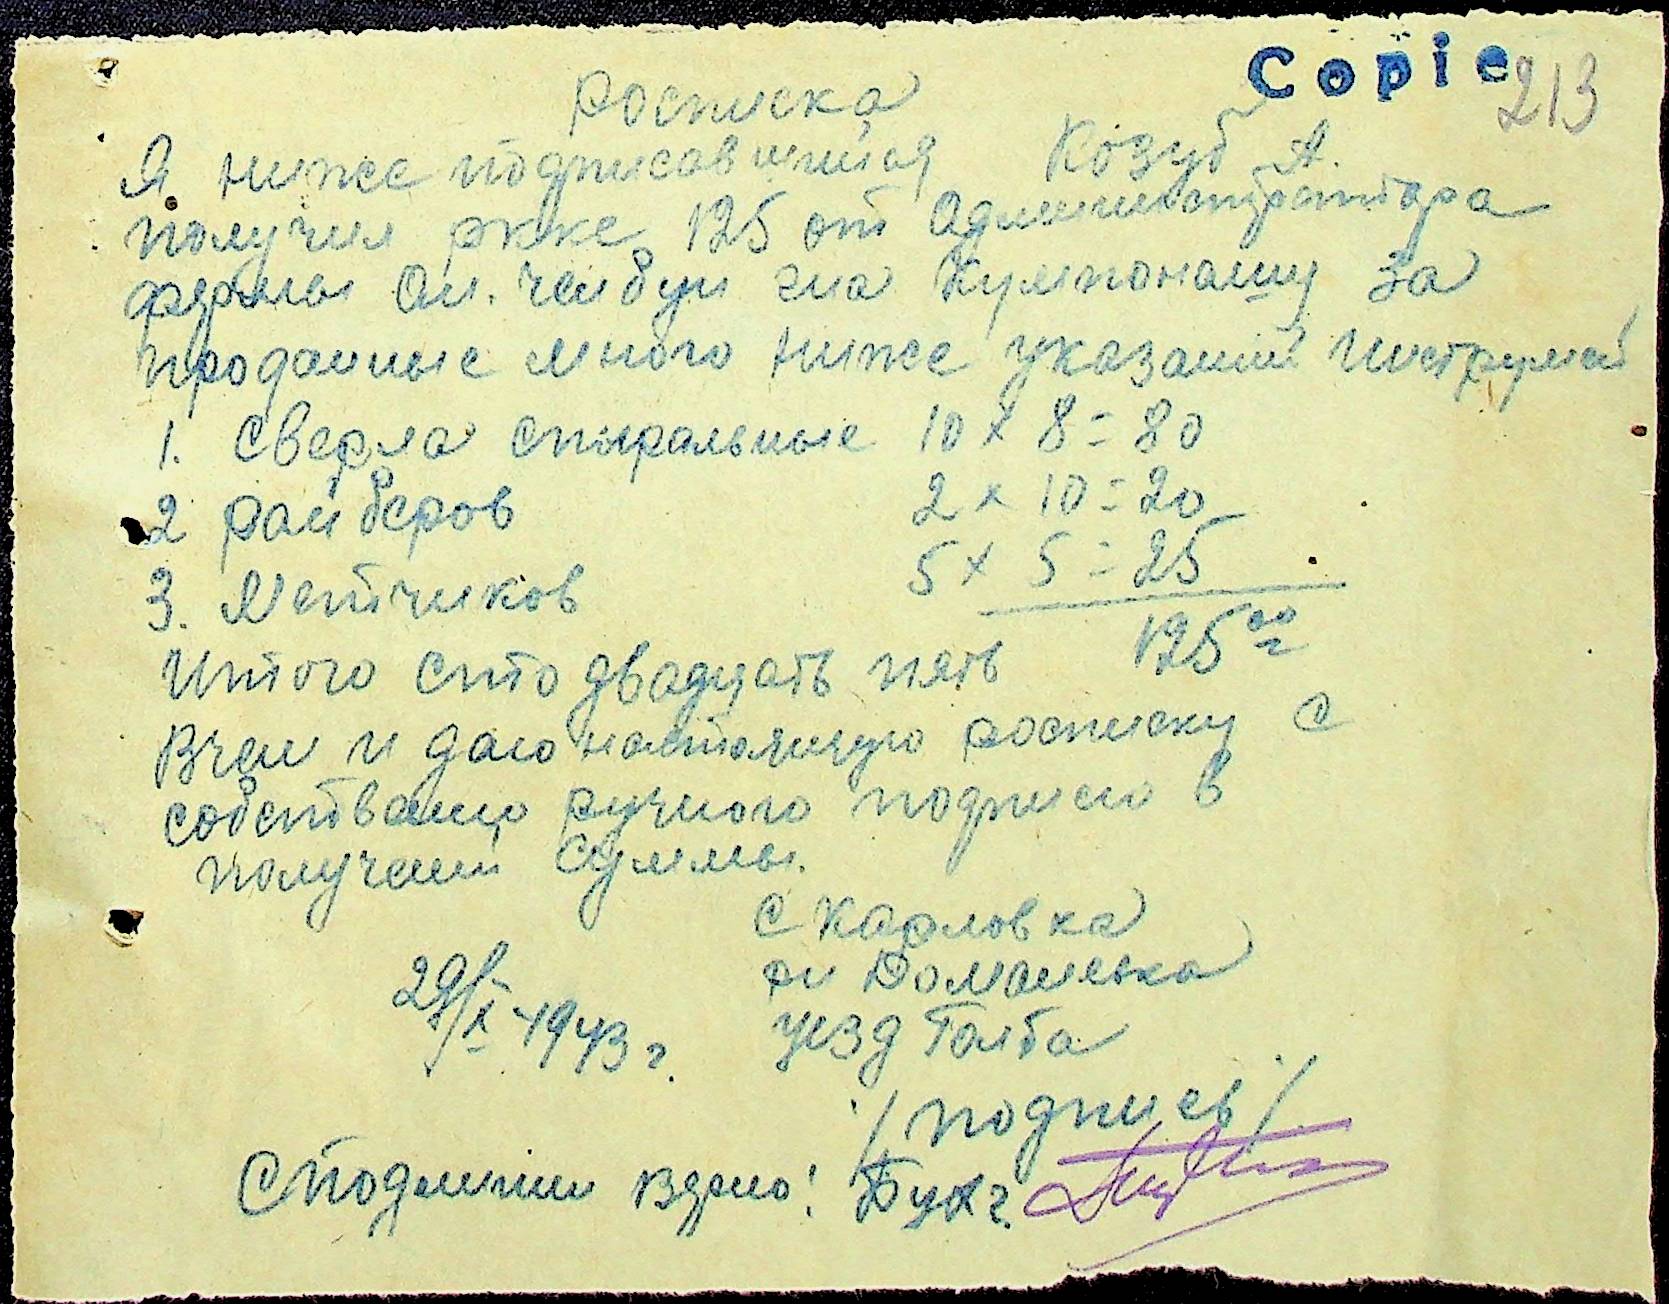 Copie 213
Росписка
Я ниже подписавшийся Козуб А.
получил ркке 125 от Администратора
фермы на за
проданные много ниже указаний Инструмен
1. Сверла спиральные 10 x 8 = 80
2 райберов 2 x 10 = 20
3. Метчиков 5 x 5 = 25
125 00
Итого сто двадцать пять
Вчем и даю настоящую росписку с
собственно ручного подписю в
получений суммы.
с Карловка
рн Доманевка
уезд Голта
29/X-1943 г.
/подпись/
С Подлинним вэрно: Бухг.